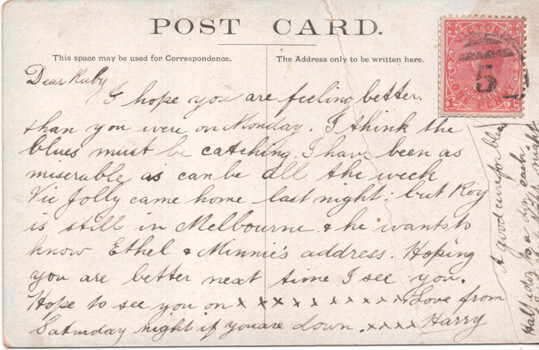 POST CARD.
This space may be used for Correspondence.
The Address only to be written here.
VICTORIA
5
Dear Ruby
I hope you are feeling better.
than you were on Monday. I think the
blues must be catching. I have been as
miserable as can be all the week
Vic Jolly came home last night; but Roy
is still in Melbourne & he wants to
know Ethel & Minnie's address. Hoping
you are better next time I see you.
Hope to see you on x x x x x x x x x x x Love from
Saturday night if you are down. x x x x Harry
A good cure for blues
Half a doz to a doz each
night